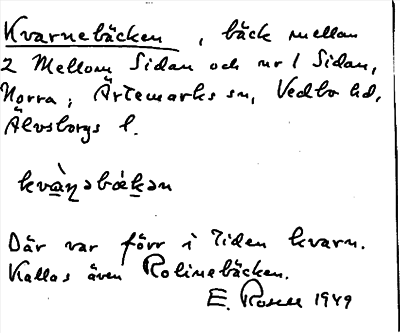 Kvarnebäcken, bäck mellan
2 Mellom Sidan och nr 1 Sidan,
Norra, Ärtemarks sn, Vedbo hd,
Älvsborgs l.
kvàɳəbækən
Där var förr i tiden kvarn.
Kallas även Rolinebäcken.
E. Rosell 1949